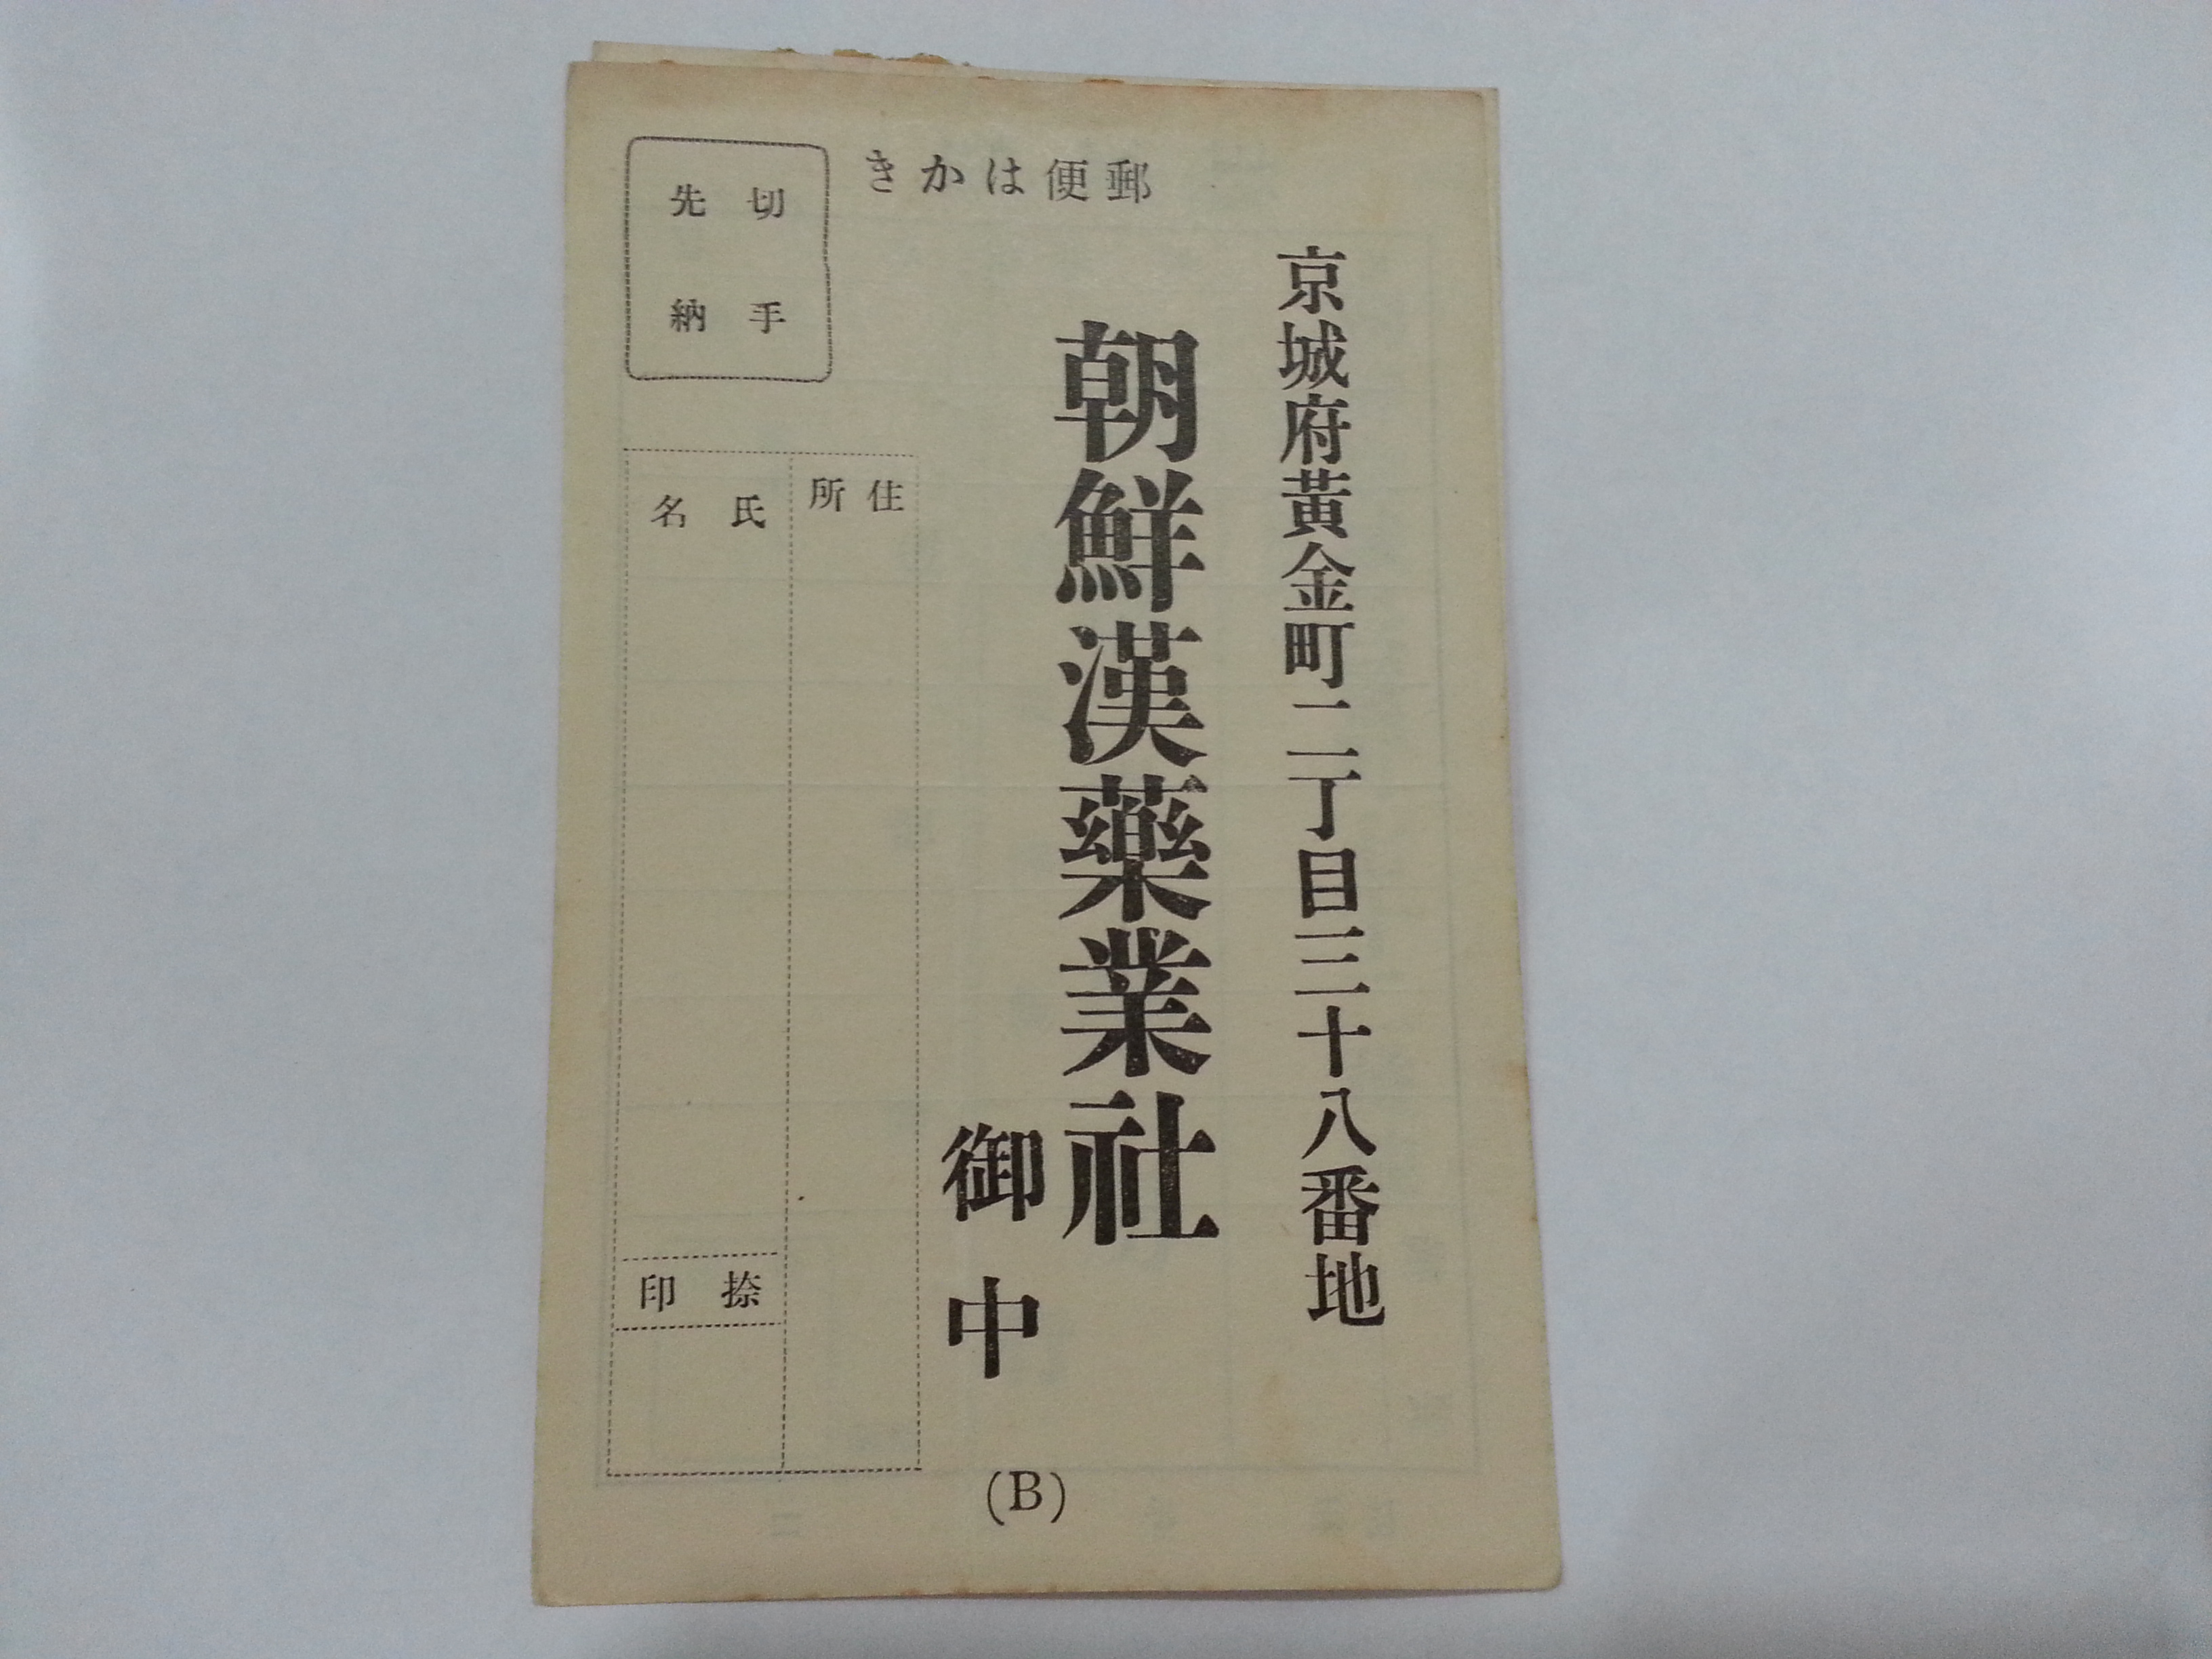 郵便はかき
京城府黃金町二丁目三十八番地
朝鮮漢藥業社
御中
切手
先納
住所
氏名
捺印
(B)